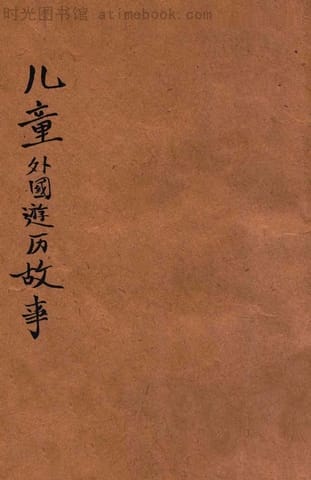 时光图书馆 atimebook.com
儿童外國遊历故事